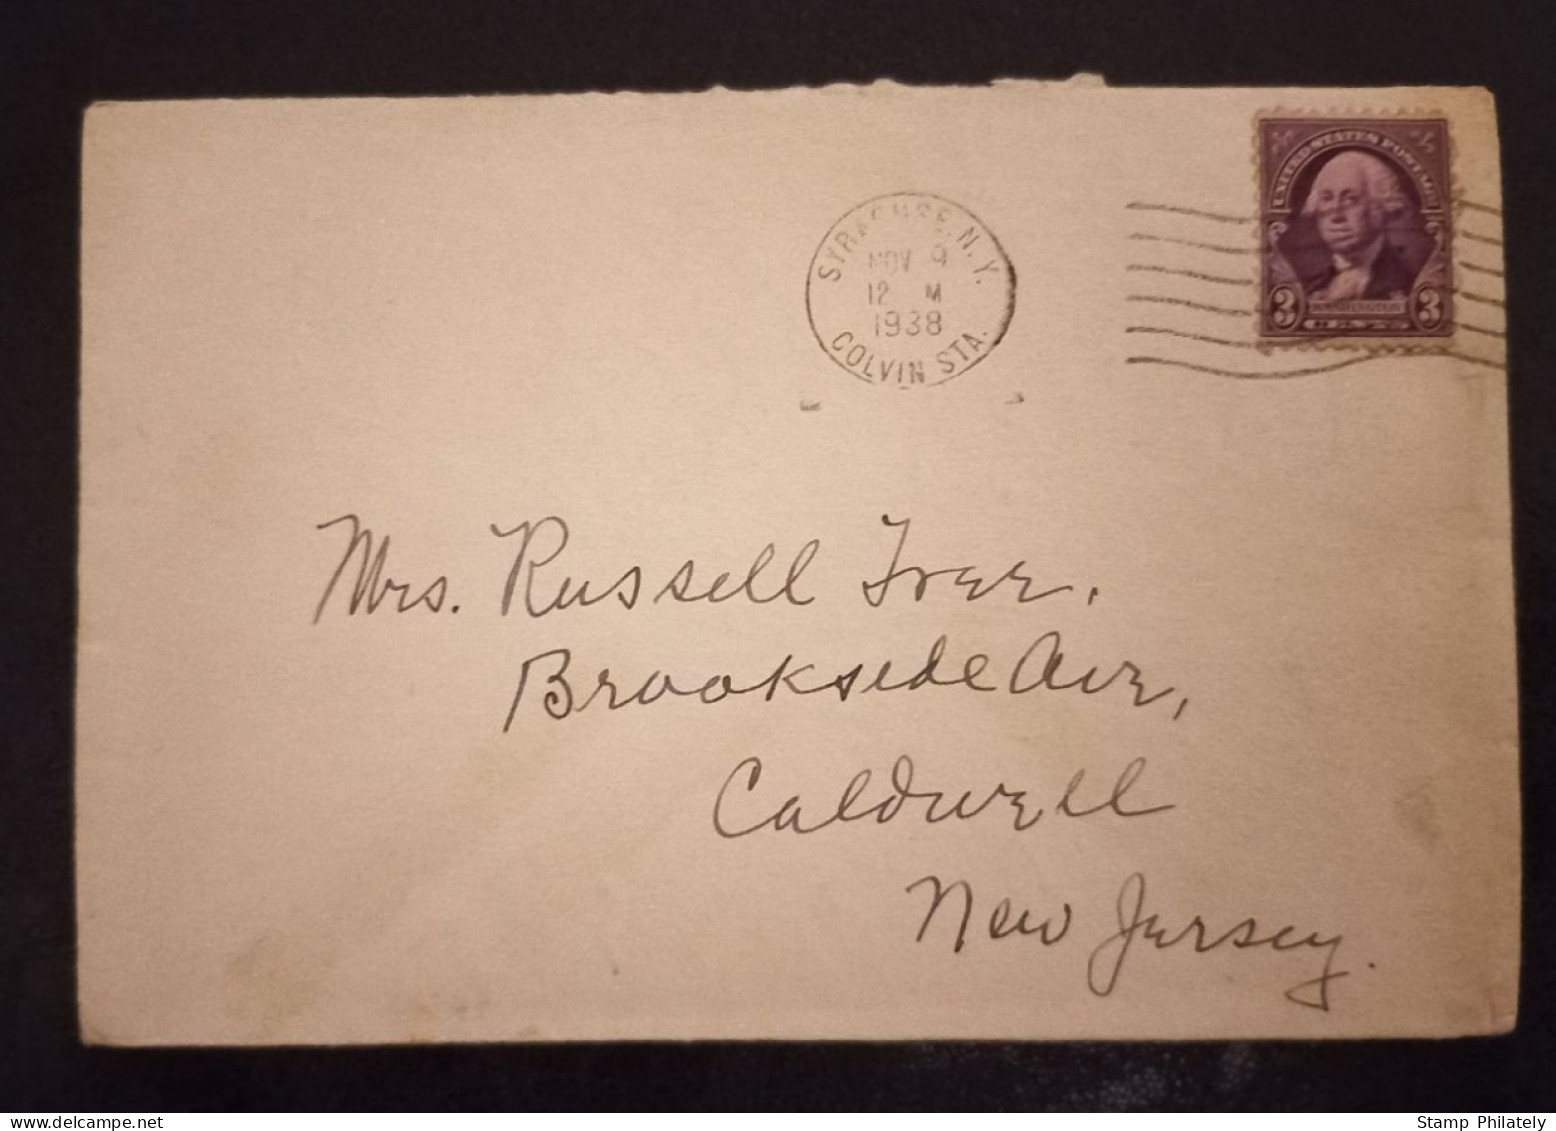 SYRACUSE, N.Y.
NOV 9
12 M
1938
COLVIN STA.
UNITED STATES POSTAGE
3 WASHINGTON 3
Mrs. Russell Tree.
Brookside Ave,
Caldwell
New Jersey.
www.delcampe.net
Stamp Philately